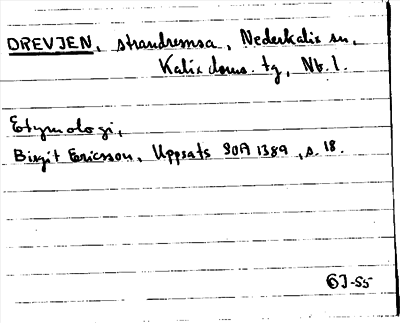 DREVJEN, strandremsa, Nederkalix sn,
Kalix doms. tg, Nb. l.
Etymologi,
Birgit Ericsson, Uppsats SOA 1389, s. 18.
GJ-55